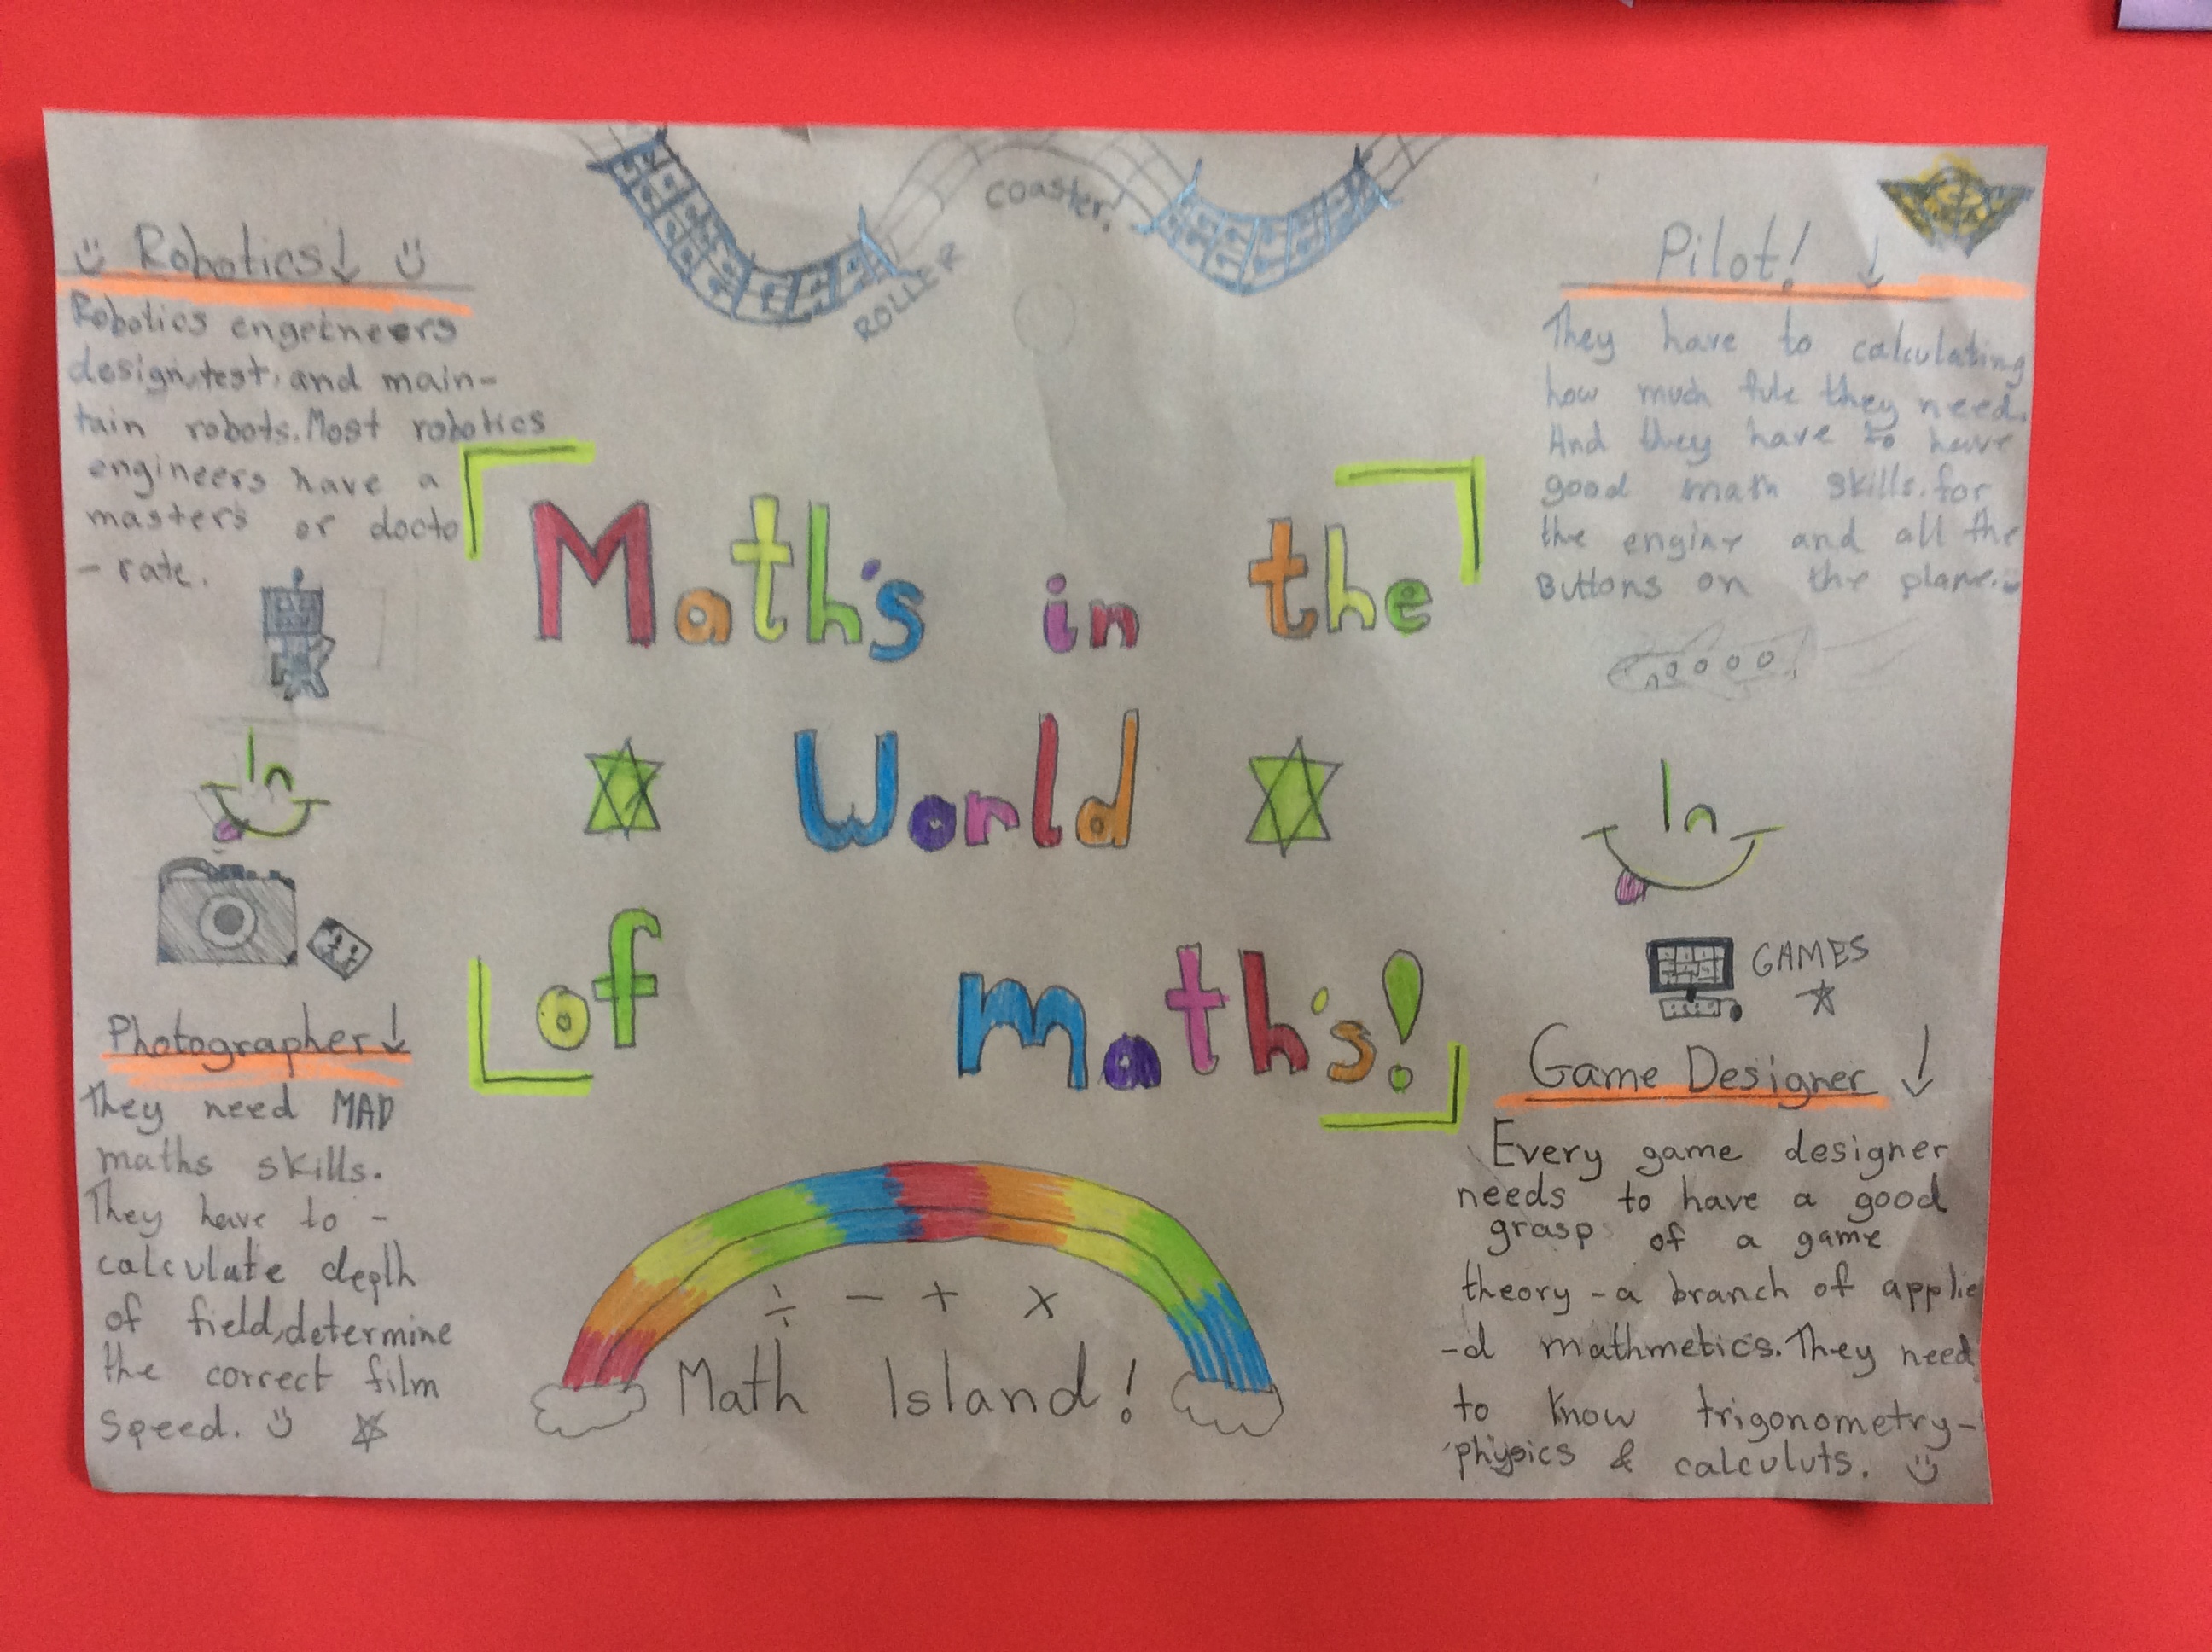 Robotics
Robotics engeineers
design,test, and main-
tain robots. Most robotics
engineers have a
master's or docto
- rate.
In
Photographer
They need MAD
maths skills.
They have to -
calculate depth
of field,determine
the correct film
speed.
ROLLER COASTER!
Math's in the
World
of math's!
÷ - + x
Math Island!
Pilot!
They have to calculating
how much fule they need.
And they have to have
good math skills. for
the engine and all the
Buttons on the plane.
In
GAMES
Game Designer
Every game designer
needs to have a good
grasp of a game
theory - a branch of applie
-d mathmetics. They need
to know trigonometry-
physics & calculuts.